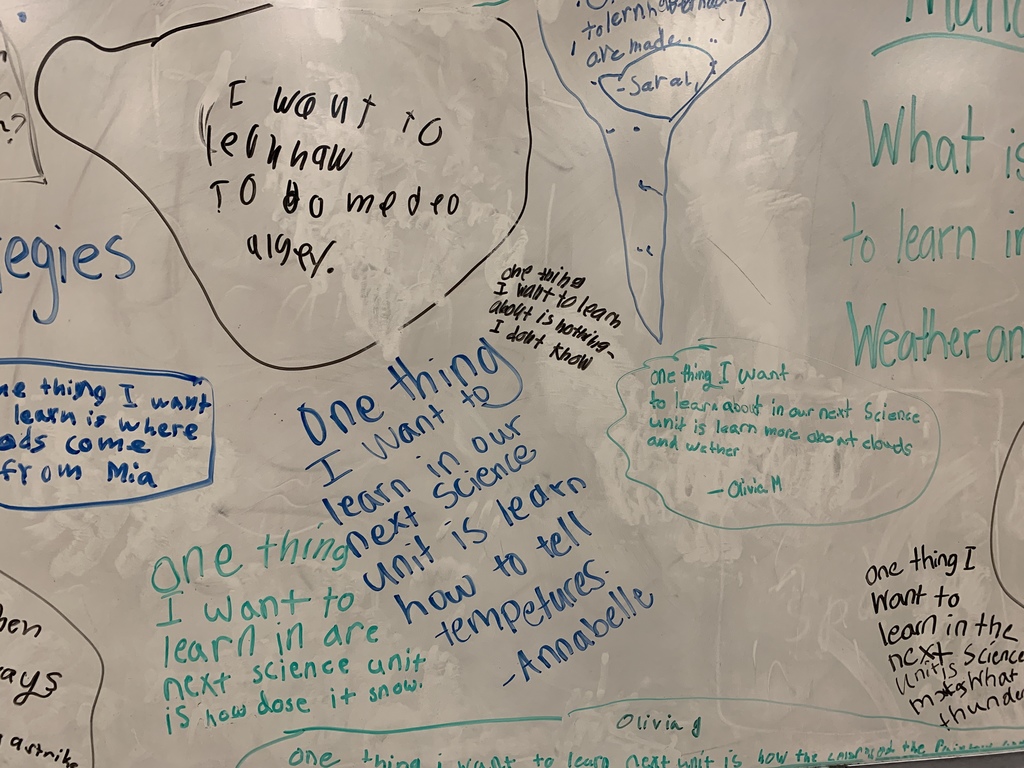 I want TO
lern haw
TO do medeo
algey.
to lern
are made.
-Sarah
What is
to learn in
Weather an
egies
one thing
I want to learn
about is nothing-
I dont know
one thing I want
to learn about in our next Science
unit is learn more about clouds
and wether
-Olivia M
ne thing I want
learn is where
ods come
from Mia
one thing
I want to
learn in our
next science
unit is learn
how to tell
tempetures.
-Annabelle
one thing
I want to
learn in are
next science unit
is how dose it snow.
one thing I
want to
learn in the
next Science
unit is
what
thunde
hen
ays
a strike
Olivia g
one thing i want to learn next unit is how the